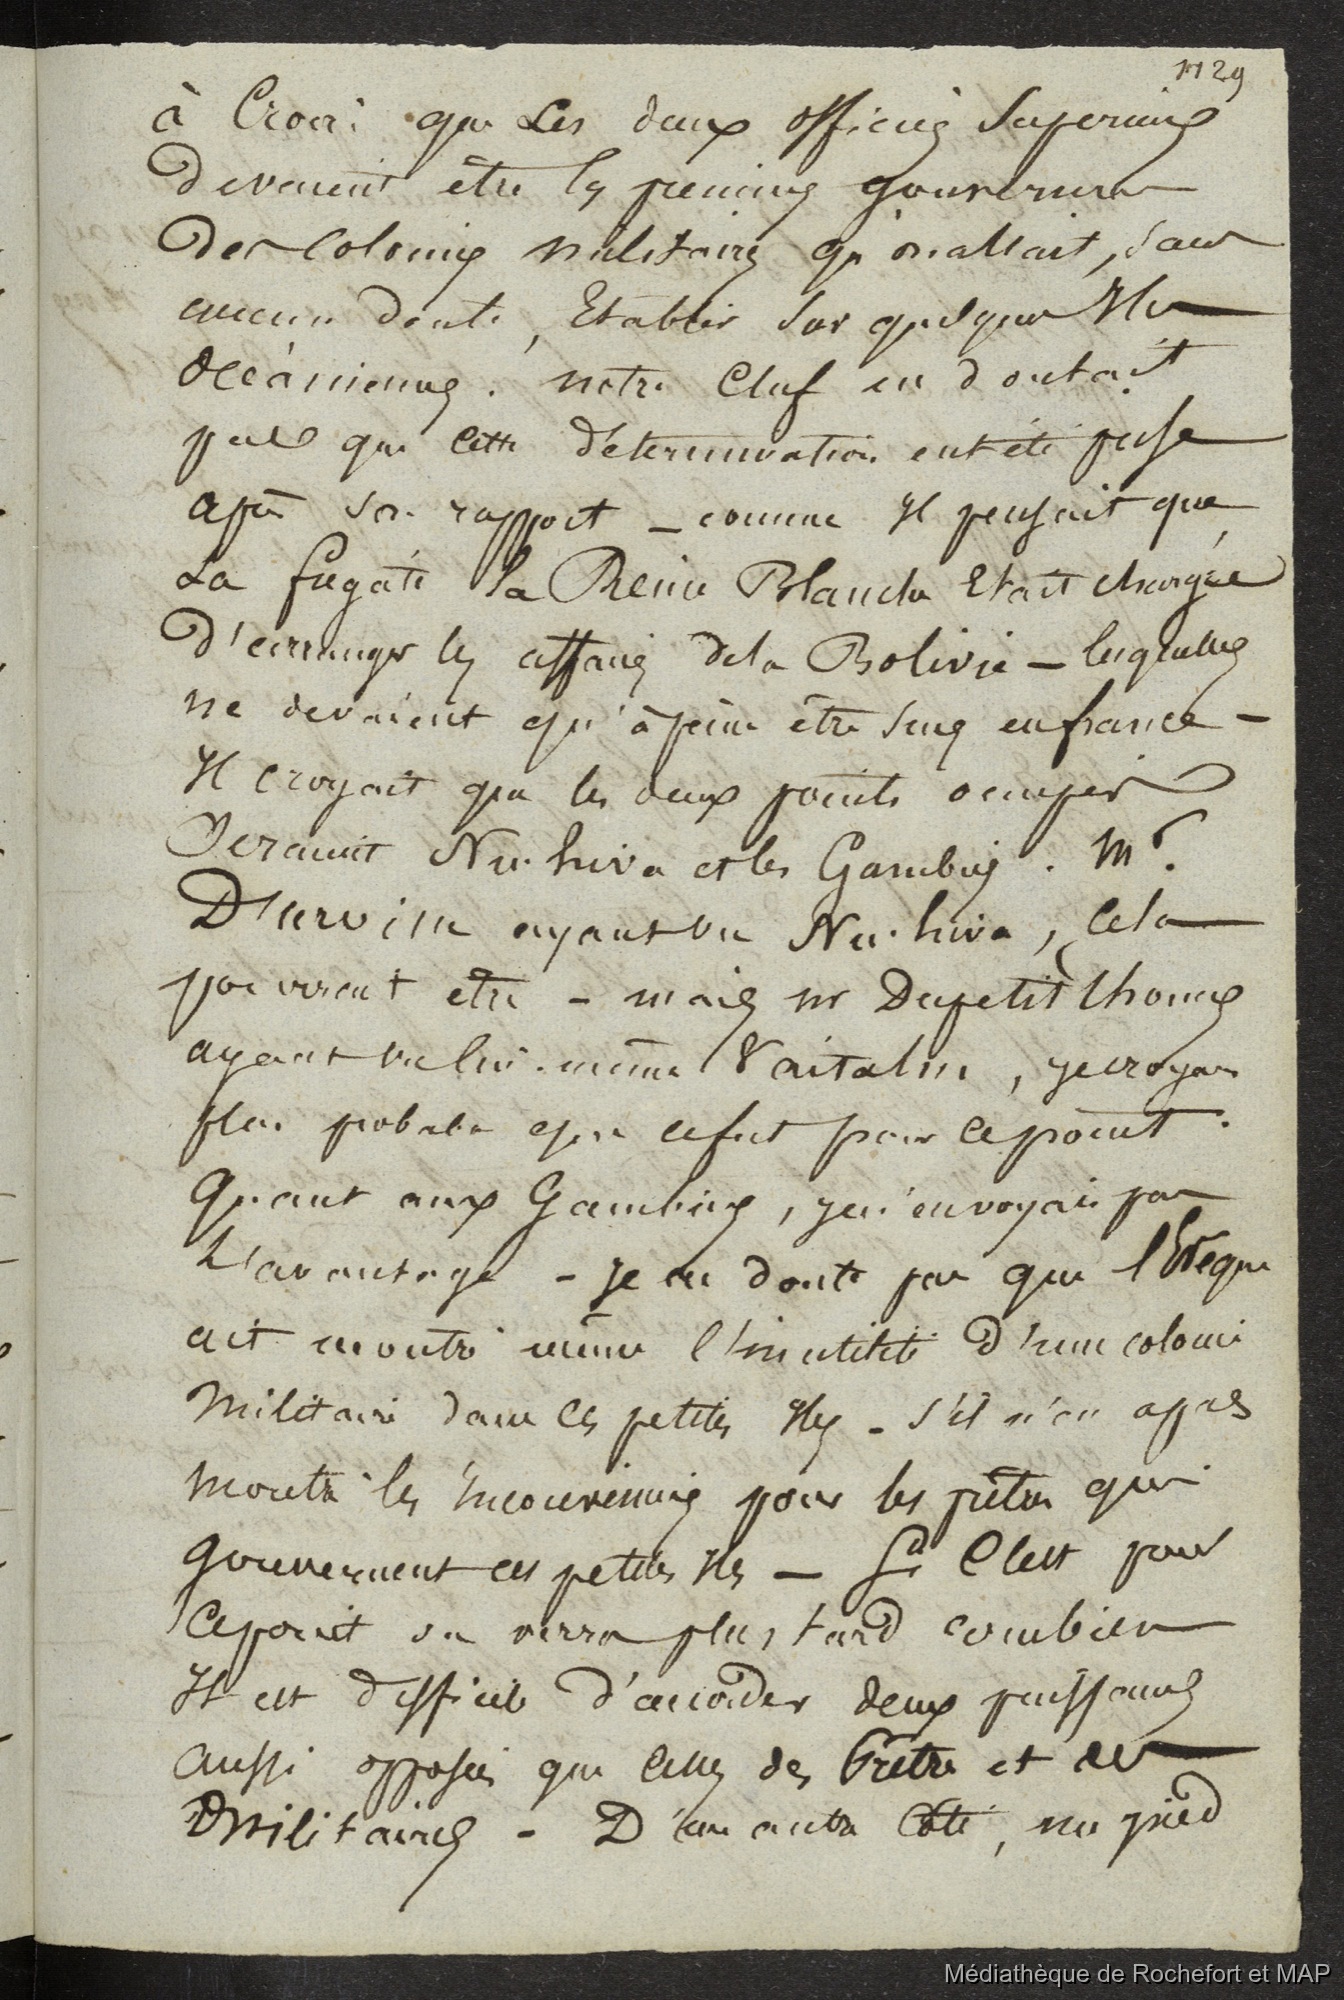 1129
à Croire que Les deux officiers Superieurs
devaient être les premiers gouverneurs
des Colonies militaires qu'on allait, sans
aucun doute, Etablir sur quelques Iles
Océaniennes. notre Chef en doutait
pas que cette détermination eut été prise
après son rapport _ comme Il pensait que
La frégate la Reine Blanche Etait chargée
d'arranger les affaires de la Bolivie _ lesquelles
ne devaient qu'à peine être sues en france _
Il croyait que les deux points occupés
Seraient Nu-hiva et les Gambiers. Mr.
D'urville ayant vu Nu-hiva, Cela
pouvait être - mais mr Dupetit thouars
ayant vu lui-même Vaitahu, je croyais
plus probable que ce fut pour ce point.
Quant aux Gambiers, je n'en voyais pas
L'avantage - Je ne doute pas que l'Evêque
ait montré même l'inutilité d'une colonie
Militaire dans ces petites Iles - s'il n'en a pas
montré les inconvéniens pour les prêtres qui
gouvernent ces petites Iles _ Si C'est pour
Ce point on verra plus tard combien
Il est difficile d'accorder deux puissances
aussi opposées que Celles des Prêtres et des
Militaires - D'un autre Côté, un pied
Médiathèque de Rochefort et MAP